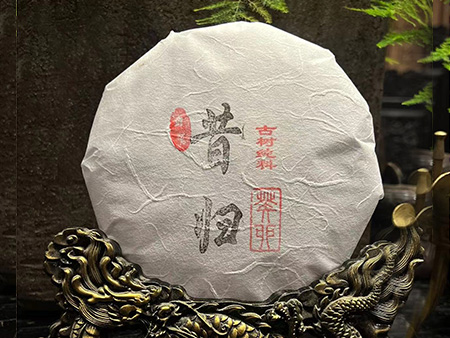 昔归
古树纯料